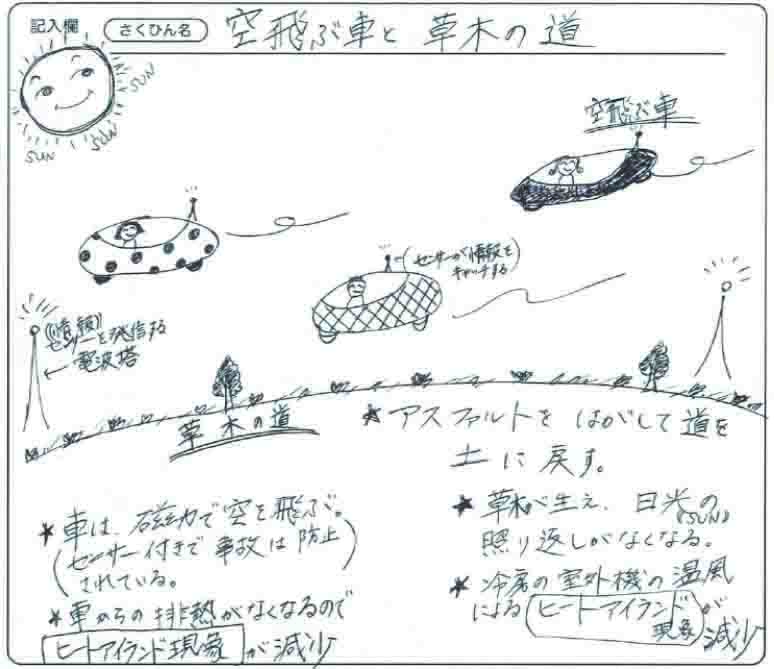 記入欄 さくひん名 空飛ぶ車と 草木の道
SUN
SUN
SUN
空飛ぶ車
(センサーが情報を
キャッチする)
(情報)
センサーを発信する
← 電波塔
草木の道
★ アスファルトを はがして 道を
土に戻す。
★ 車は、磁力で空を飛ぶ。
(センサー付きで 事故は 防止
されている。)
★ 車からの排熱がなくなるので
ヒートアイランド現象が減少
★ 草木が生え、日光の
(SUN)
照り返しがなくなる。
★ 冷房の室外機の温風
による(ヒートアイランド
現象)が
減少